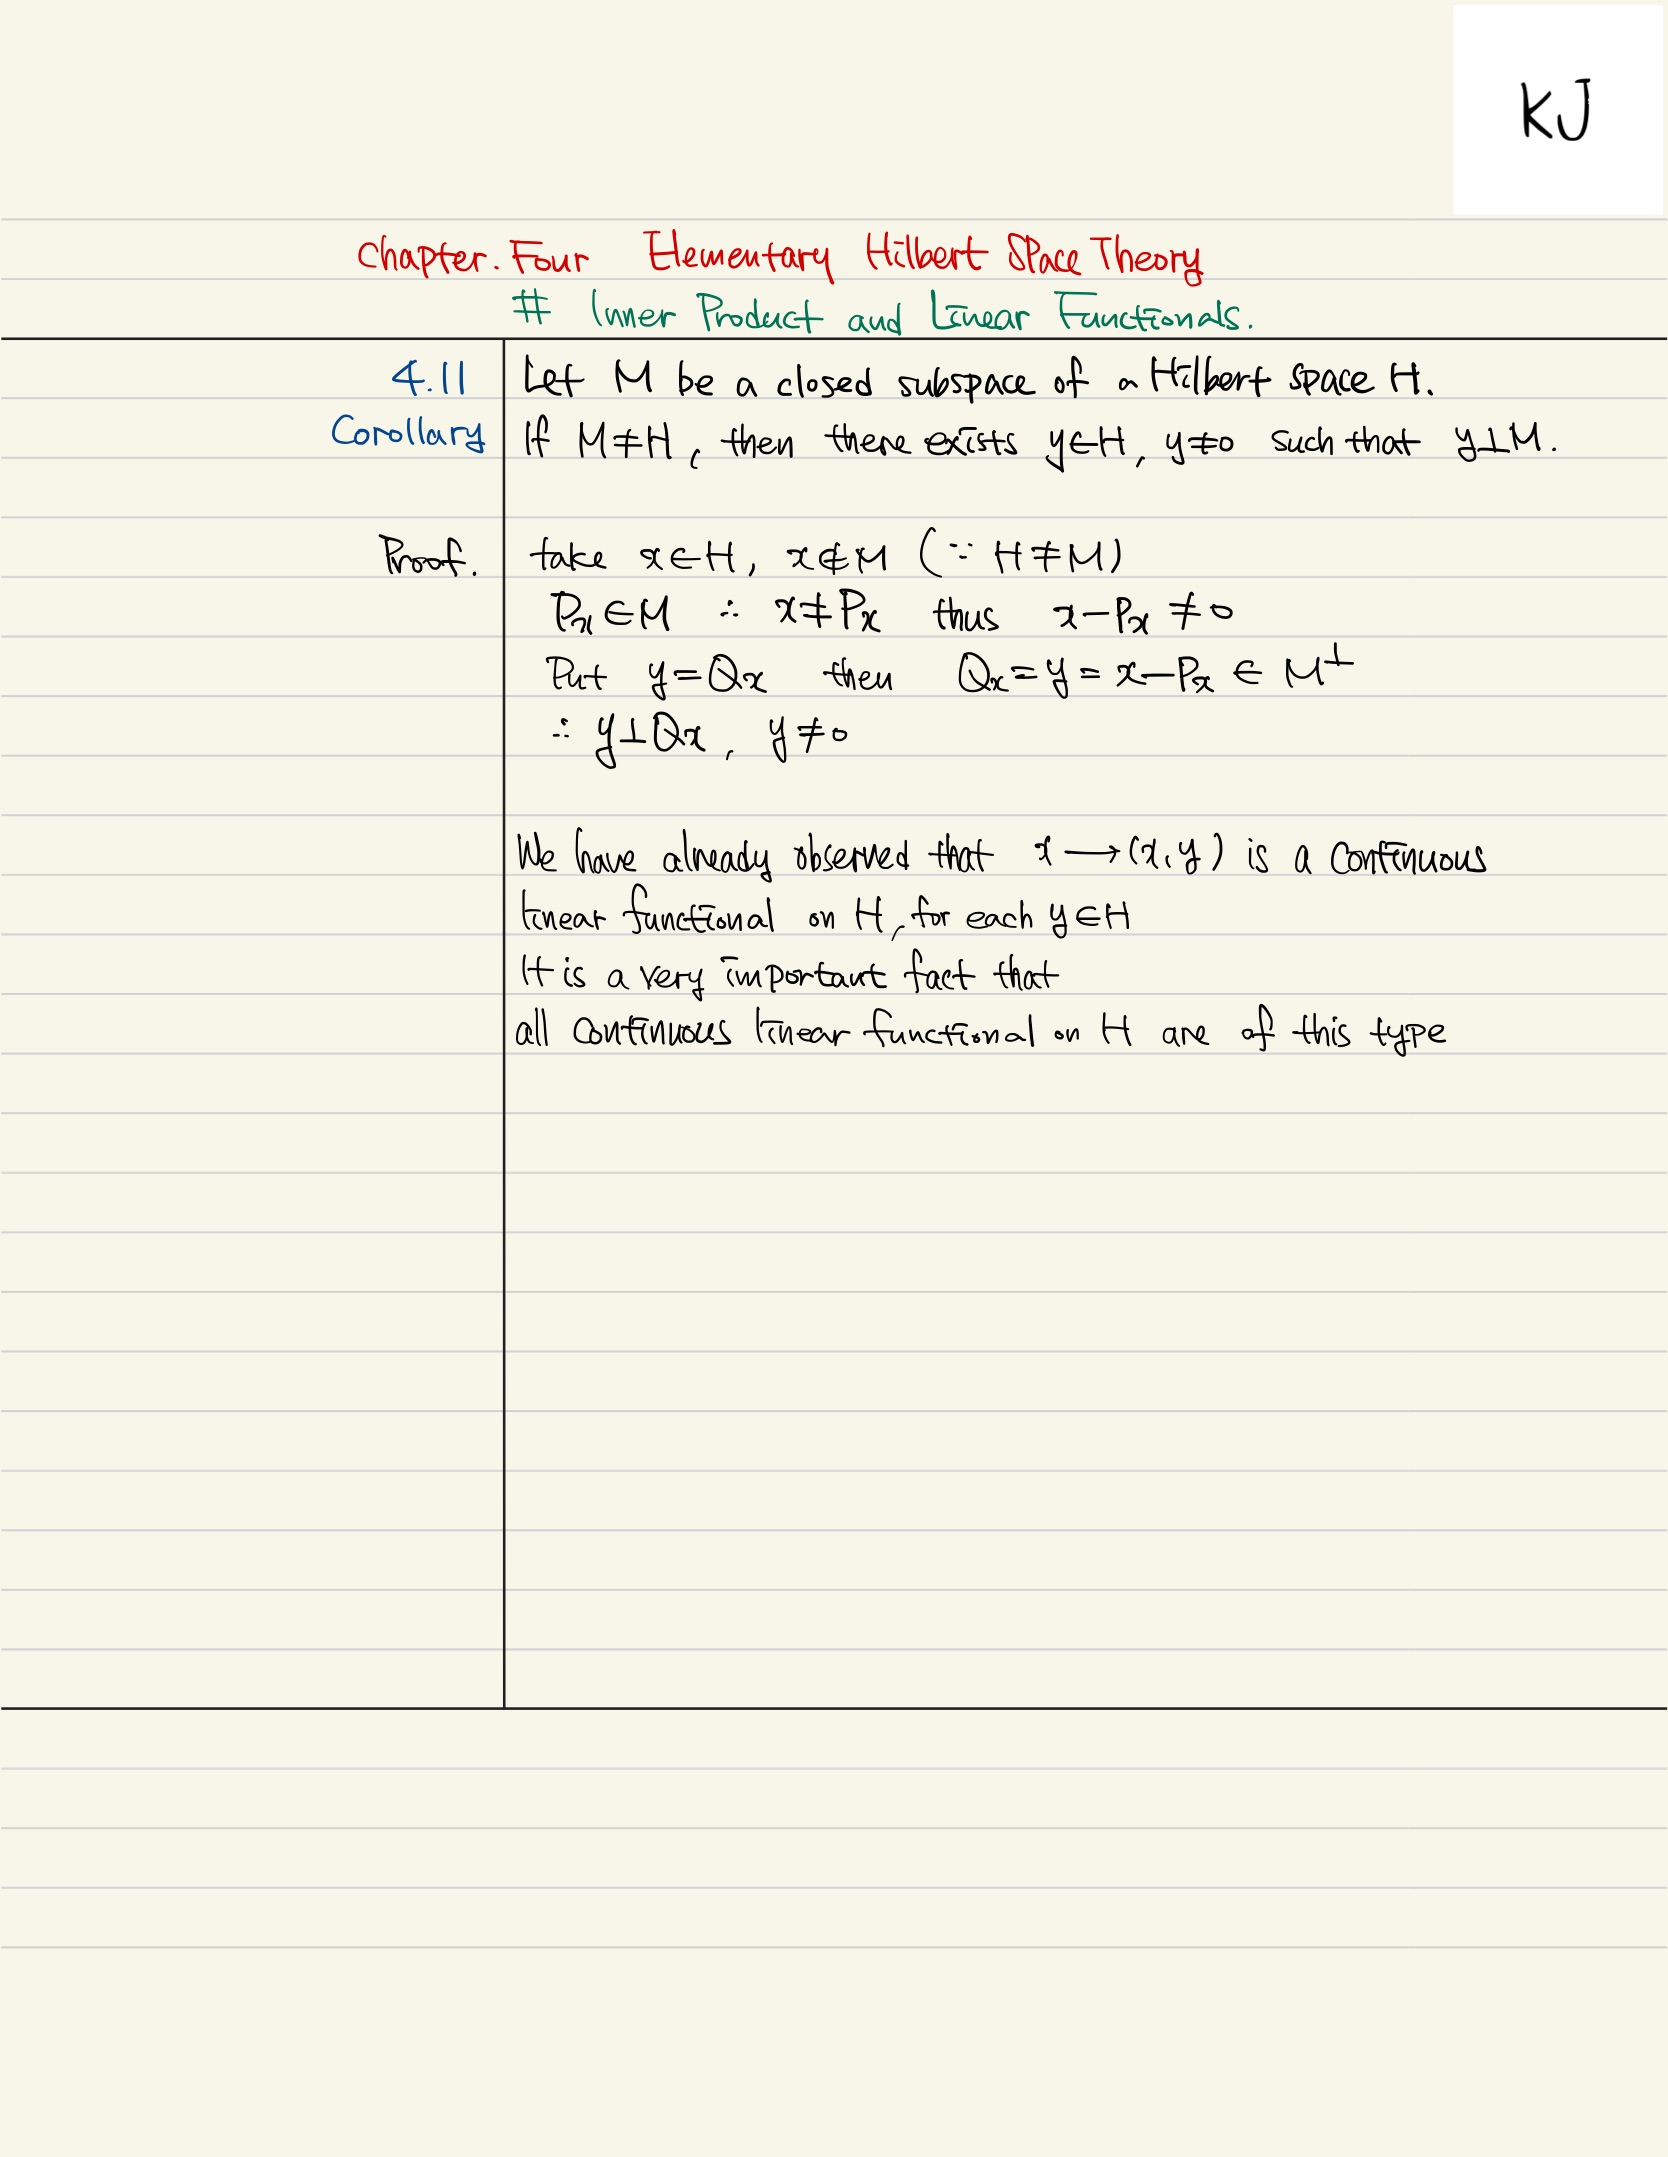 KJ
Chapter. Four Elementary Hilbert Space Theory
# Inner Product and Linear Functionals.
4.11 Let M be a closed subspace of a Hilbert space H.
Corollary If M≠H, then there exists y∈H, y≠0 such that y⊥M.
Proof. take x∈H, x∉M (∵ H≠M)
Px∈M ∴ x≠Px thus x-Px ≠0
Put y=Qx then Qx=y=x-Px ∈ M⊥
∴ y⊥Qx, y≠0
We have already observed that x→(x,y) is a continuous
linear functional on H, for each y∈H
It is a very important fact that
all continuous linear functional on H are of this type